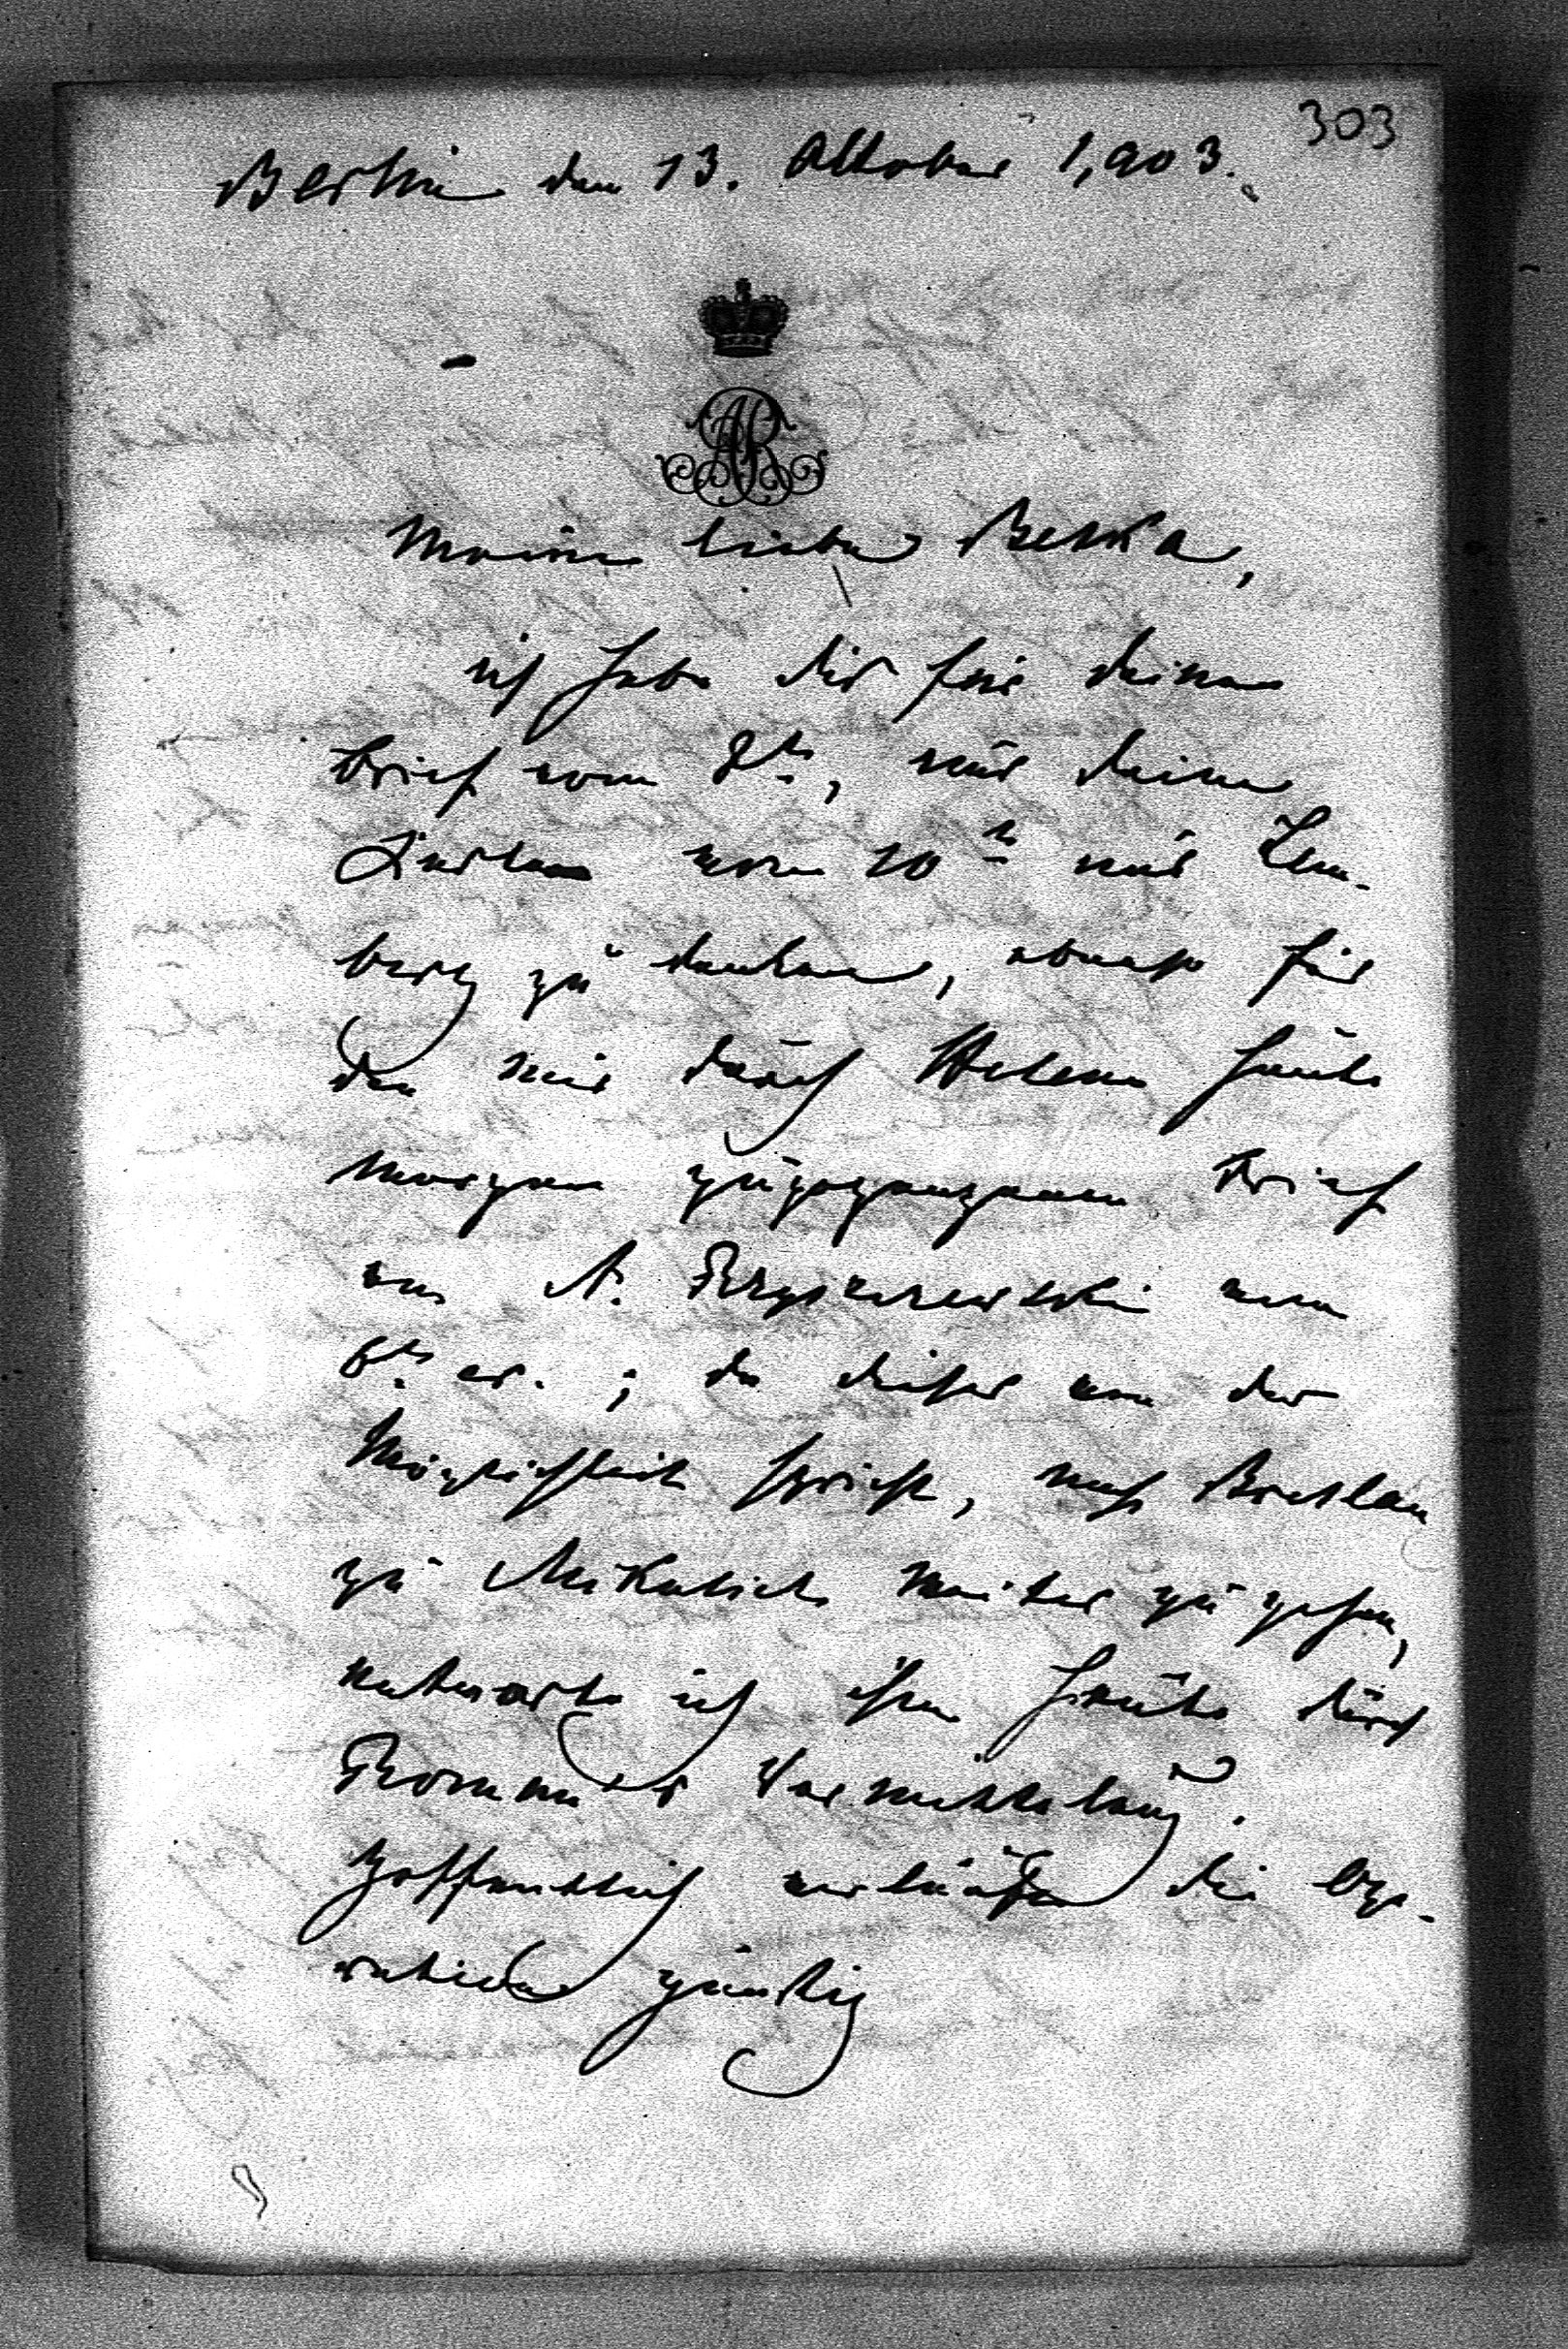 303
Berlin den 13. Oktober 1,903.
AR
Meine liebe Betka,
ich habe dir für deinen
Brief vom 8ten, und deine
Karten vom 10ten aus Lem-
berg zu danken, ebenso für
den mir durch Helene heute
morgen zugegangenen Brief
von A.
6ten cr.; da dieser von der
Möglichkeit spricht, nach Breslau
zu Mikulicz weiter zu gehen,
antworte ich ihm heute durch
Vermittelung.
Hoffentlich verläuft die Ope-
ration günstig